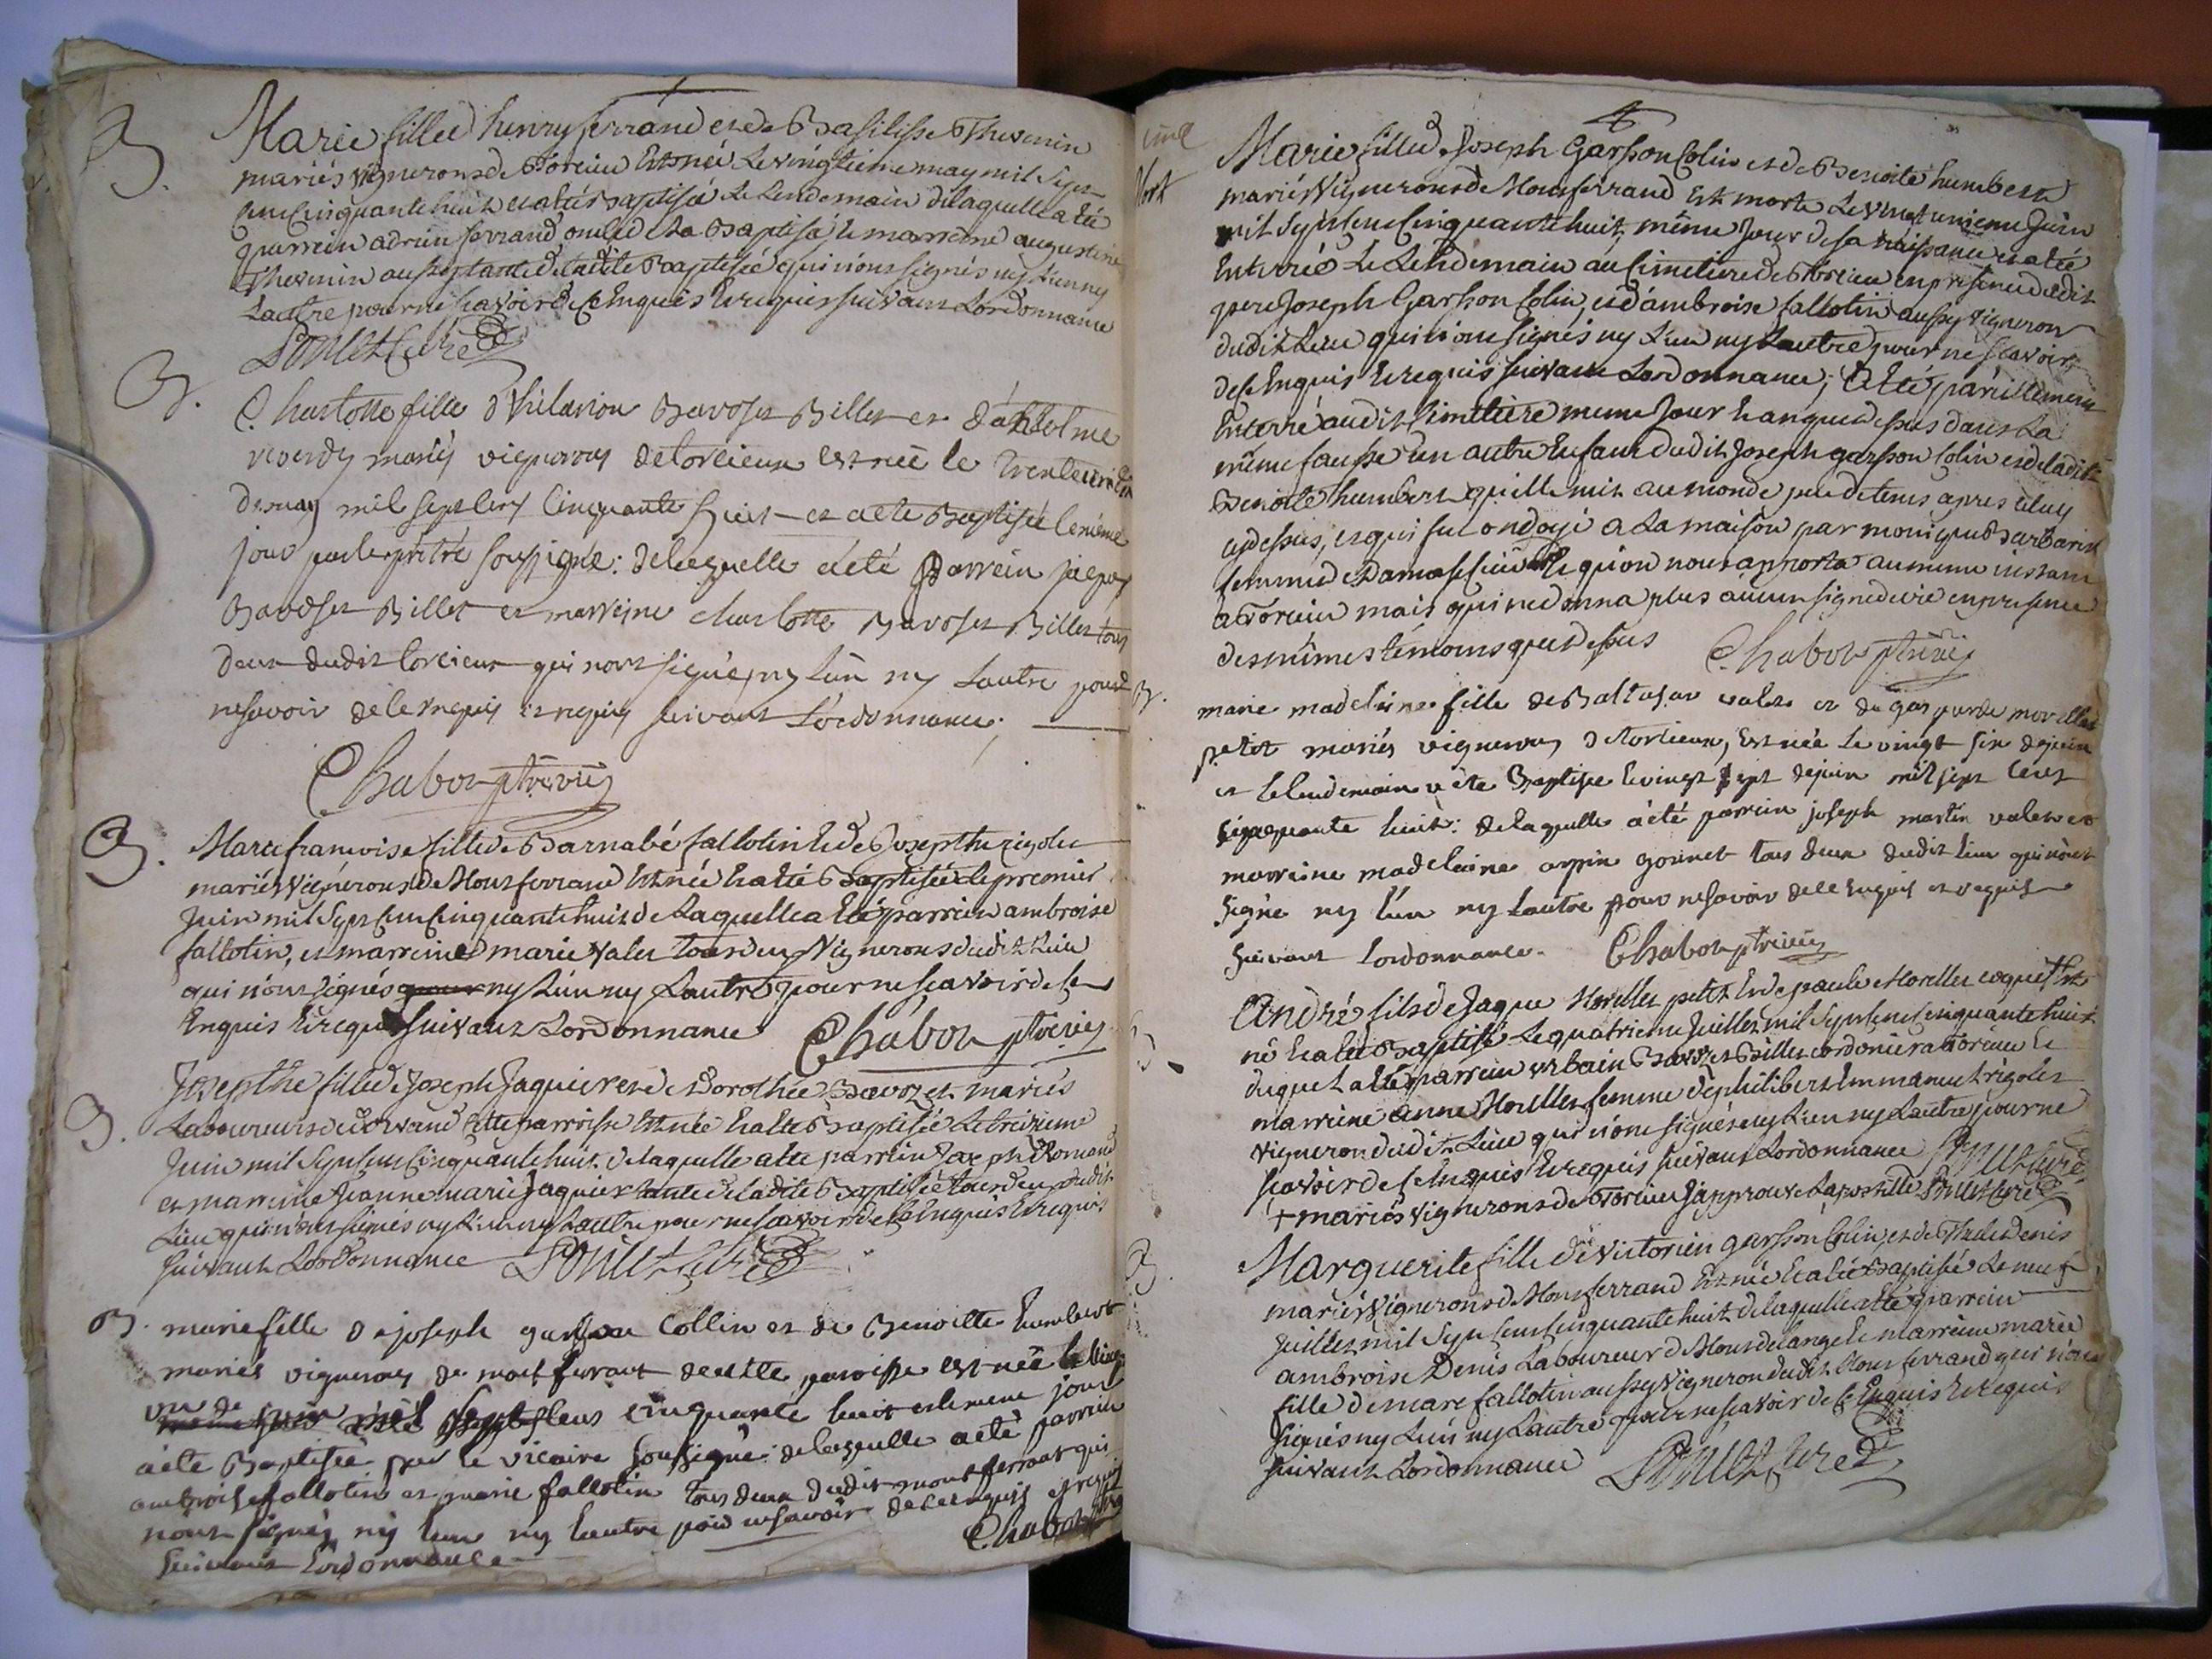 B.
Marie fille d henry ferrand et de Basilisse Thevenin
mariés vignerons de Torcieu Est née Le vingtieme may mil sept
cens Cinquante huit et a été Baptisée Le Lendemain de laquelle a été
parrein adrien ferrand oncle de la Baptisée, et marreine augustine
Thevenin aussy tante de ladite Baptisée qui n'ont signés ny L'un ny
Lautre pour ne scavoir de ce Enquis Et requis suivant Lordonnance
curé
B.
Charlotte fille d'hilarion Bavoset Billet et
reverdy mariés vignerons de torcieux est née le trente
de may mil sept cens Cinquante huit et a été Baptisée le même
jour par le prêtre soussigné: de laquelle a été parrein jaque
Bavoset Billet et marreine charlotte Bavoset Billet tous
deux dudit torcieux qui n'ont signés ny l'un ny Lautre pour
ne savoir de ce enquis et requis suivant L'ordonnance.
Chabot ptre vic
B.
Marie francoise fille de Barnabé fallotin Et de Josepthe rigolet
mariés vignerons de Montferrand Est née Et a été Baptisée le premier
Juin mil Sept Cens Cinquante huit de Laquelle a Eté parrein ambroise
fallotin, et marreine marie valet tous deux Vignerons dudit Lieu
qui n'ont signés ny L'un ny Lautre pour ne scavoir de ce
Enquis Et requis suivant Lordonnance Chabot ptre vic
B.
Josepthe fille de Joseph Jaquier et de Dorothée Bavozet mariés
Laboureurs de cette parroisse Est née Et a été Baptisée Le treizieme
Juin mil Sept cens Cinquante huit de laquelle a été parrein Joseph Romand
et marreine Jeanne marie Jaquier tante de ladite Baptisée tous deux dudit
Lieu qui n'ont signés ny L'un ny Lautre pour ne scavoir de ce Enquis Et requis
suivant Lordonnance curé
B.
marie fille de joseph garsson Collin et de Benoitte humbert
mariés vignerons de montferrant de cette paroisse est née le vingt
un de juin mil sept cens cinquante huit et le meme jour
a été Baptisée par le vicaire soussigné: de laquelle a été parrein
ambroise fallotin et marie fallotin tous deux dudit montferrant qui
n'ont signés ny l'un ny lautre pour ne savoir de ce enquis et requis
suivant Lordonnance Chabot
Mort
Marie fille de Joseph Garsson Colin et de Benoite humbert
mariés Vignerons de Monferrand Est morte Le vingt unieme Juin
mil sept cens Cinquante huit, même Jour de sa naissance et a été
Enterrée Le Lendemain au Cimetiere de Torcieu en presence dudit
pere Joseph Garsson Colin, et d'ambroise fallotin aussy vigneron
dudit Lieu qui n'ont signés ny L'un ny Lautre pour ne scavoir
de ce Enquis Et requis suivant Lordonnance; a Eté pareillement
Enterré audit Cimetiere meme Jour Et an que dessus dans La
même fausse un autre Enfant dudit Joseph garsson Colin et de ladite
Benoite humbert qu'elle mit au monde peu de tems apres celuy
cy dessus, et qui fut ondoyé a La maison par monique Barbarin
femme de Damas Et qu'on nous apporta au meme instant
a Torcieu mais qui ne donna plus aucun signe de vie en presence
des mêmes témoins que dessus Chabot ptre vic
B.
marie madeleine fille de Baltasar valet et de gasparde morellet
petit mariés vignerons de torcieux, est née Le vingt six de juin
et le lendemain a été Baptisée le vingt sept de juin mil sept cens
cinquante huit: de laquelle a été parrein joseph martin valet et
marreine madeleine arpin gonnet tous deux dudit lieu qui n'ont
signé ny l'un ny lautre pour ne savoir de ce enquis et requis
suivant Lordonnance. Chabot ptre vic
B.
André fils de Jaque Morellet petit Et de paule Morellet coque + Est
né Et a été Baptisé Le quatrieme Juillet mil Sept cens Cinquante huit
duquel a été parrein urbain Bavozet Billet cordonier a Torcieu Et
marreine anne Morellet femme de philibert Emmanuel rigolet
vigneron dudit Lieu qui n'ont signés ny L'un ny Lautre pour ne
scavoir de ce Enquis Et requis suivant Lordonnance curé
+ mariés vignerons de Torcieu J'approuve L'apostille curé
B.
Marguerite fille de Victorien garsson Colin et de Denis
mariés Vignerons de Monferrand Est née Et a été Baptisée Le neuf
Juillet mil Sept cens Cinquante huit de laquelle a été parrein
ambroise Denis Laboureur de Montdelange Et marreine marie
fille de marc fallotin aussy Vigneron dudit Monferrand qui n'ont
signés ny L'un ny Lautre pour ne scavoir de ce Enquis Et requis
suivant Lordonnance curé